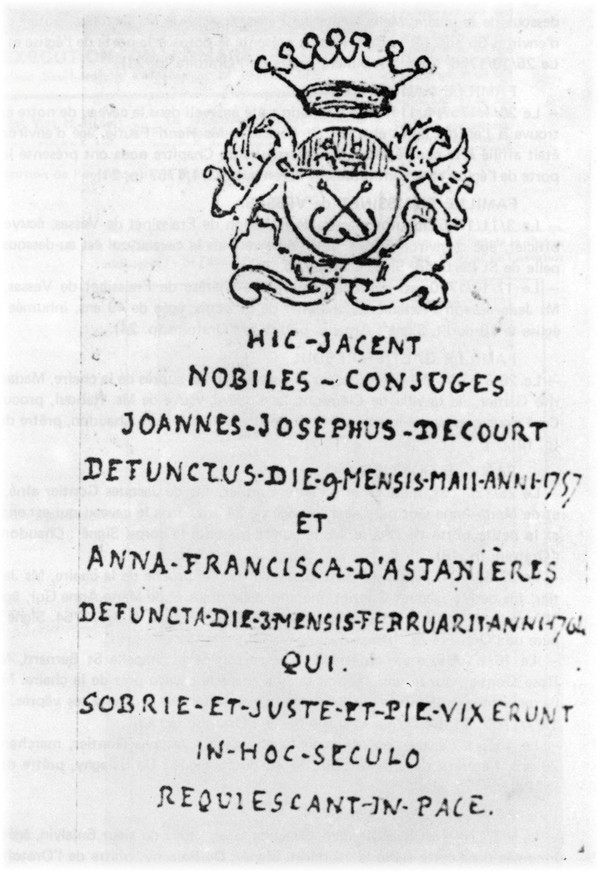 HIC-JACENT
NOBILES-CONJUGES
JOANNES-JOSEPHUS-DECOURT
DEFUNCTUS-DIE-9-MENSIS-MAII-ANNI-1757
ET
ANNA-FRANCISCA-D'ASTANIÈRES
DEFUNCTA-DIE-3-MENSIS-FEBRUARII-ANNI-1764
QUI.
SOBRIE-ET-JUSTE-ET-PIE-VIXERUNT
IN-HOC-SECULO
REQUIESCANT-IN-PACE.